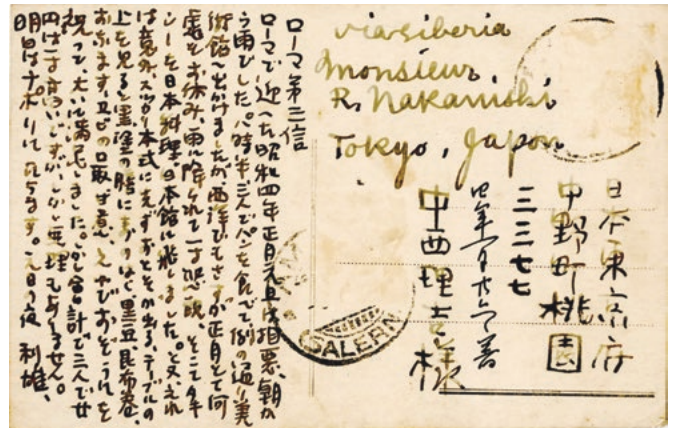 via siberia
Monsieur
R. Nakanishi
Tokyo, Japon
日本東京府
中野町桃園
三三七七
中西理吉様
SALERN
ローマ第三信
ローマで迎へた昭和四年正月元旦は相悪、朝か
ら雨でした。八時半三人でパンを食べて例の通り美
術館へ出かけましたが、西洋でもさすが正月とて何
處もお休み、雨に降られて一寸悲観、そこで
シーを日本料理、日本館に飛しました。と又、これ
は意外、スッカリ本式にまずおとそが出る、テーブルの
上を見ると黒塗の膳に 黒豆、昆布巻、
おなます、 口取、甘煮、 でおぞうにを
祝つて、大いに満足しました。しかし会計で三人で廿
円は一寸高いですが、しかし無理もありません。
明日はナポリに立ちます。元日の夜 利雄、